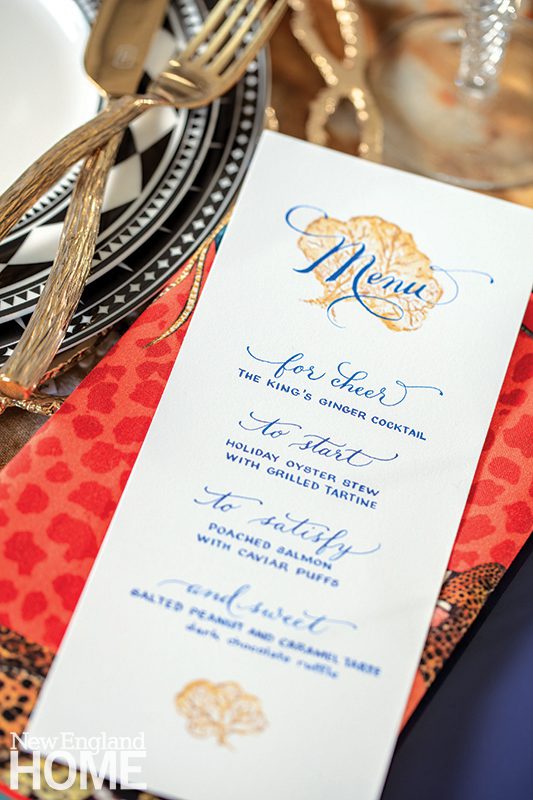 Menu
for cheer
THE KING'S GINGER COCKTAIL
to start
HOLIDAY OYSTER STEW
WITH GRILLED TARTINE
to satisfy
POACHED SALMON
WITH CAVIAR PUFFS
and sweet
SALTED PEANUT AND CARAMEL TARTS
dark chocolate
New England
HOME